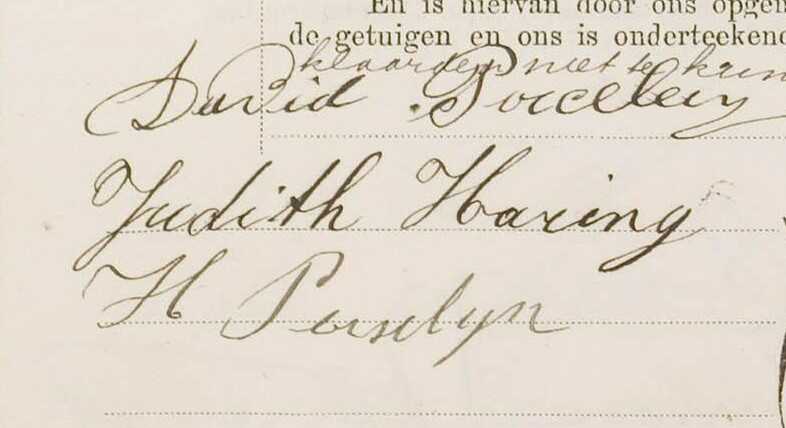 En is hiervan door ons opgem
de getuigen en ons is onderteekend
klaarden niet te kun
David Porceleijn
Judith Haring
H Porselyn